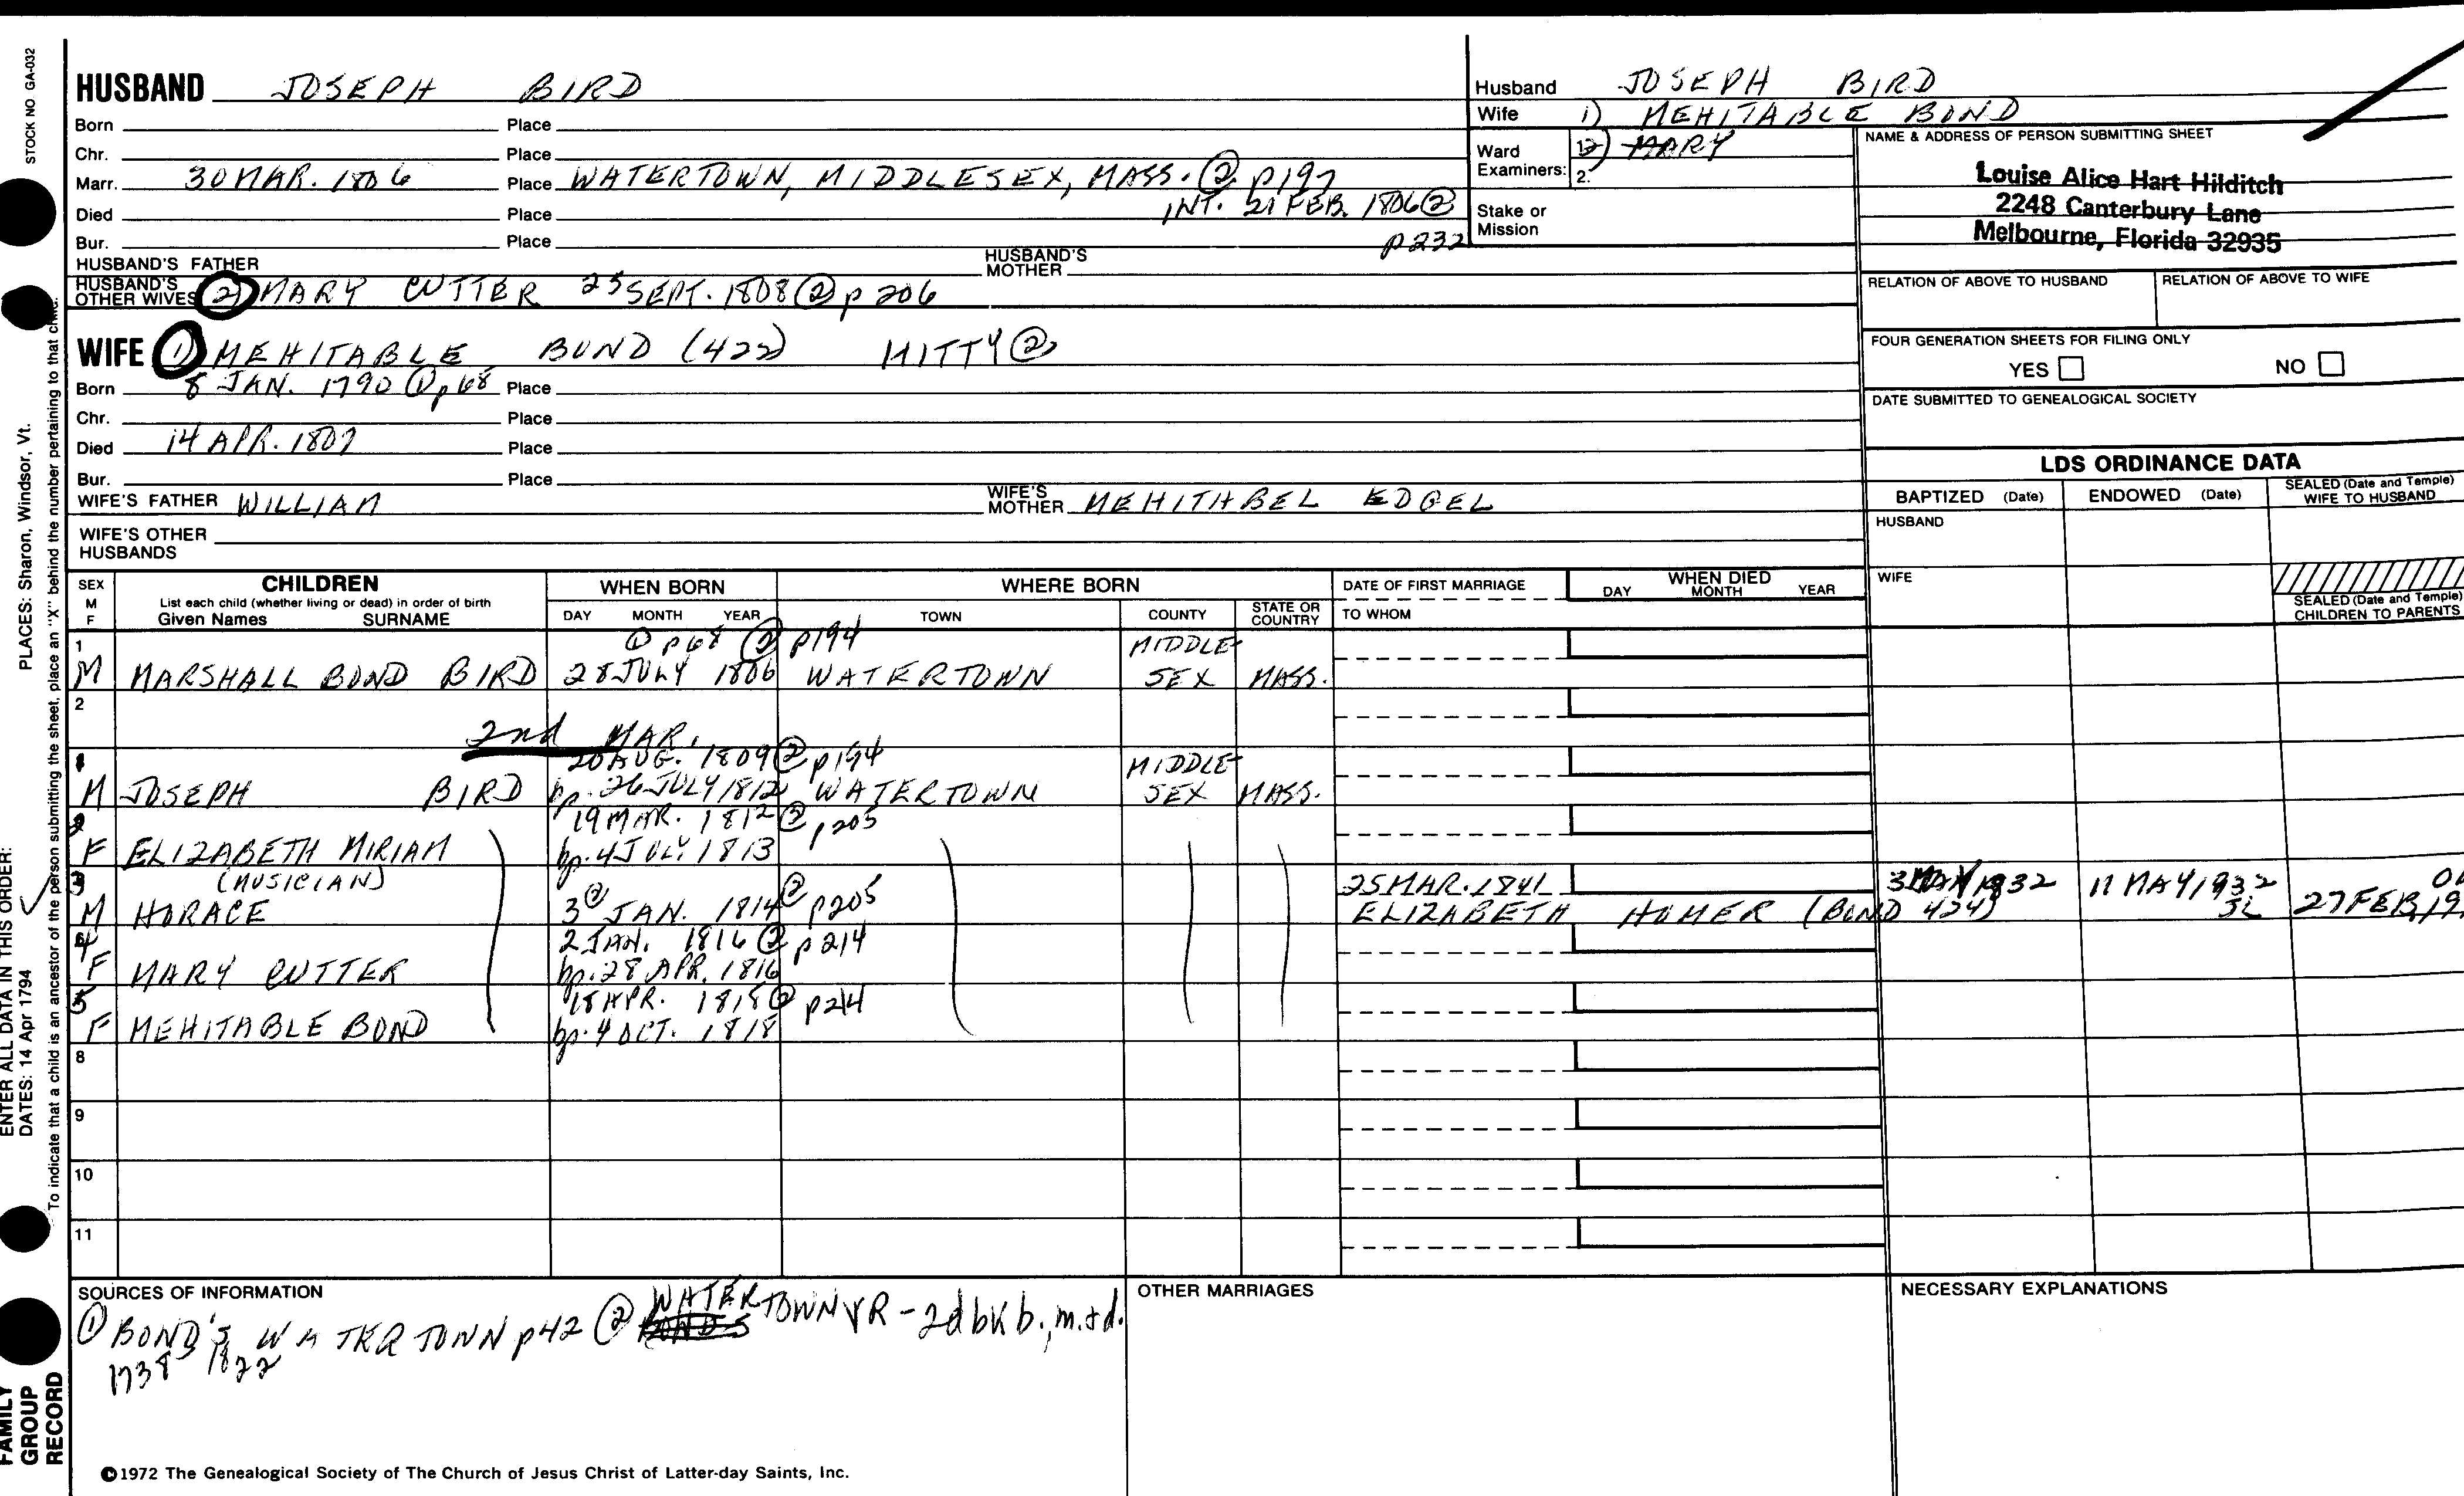 STOCK NO GA-032
HUSBAND JOSEPH BIRD
Born Place
Chr. Place
Marr. 30 MAR. 1806 Place WATERTOWN, MIDDLESEX, MASS. ② p197
Died Place INT. 21 FEB. 1806 ②
Bur. Place p232
HUSBAND'S FATHER HUSBAND'S MOTHER
HUSBAND'S OTHER WIVES 2) MARY CUTTER 25 SEPT. 1808 ② p 206
WIFE 1) MEHITABLE BOND (422) HITTY ②
Born 8 JAN. 1790 ① p 68 Place
Chr. Place
Died 14 APR. 1807 Place
Bur. Place
WIFE'S FATHER WILLIAM WIFE'S MOTHER MEHITHBEL EDGEL
WIFE'S OTHER HUSBANDS
Husband JOSEPH BIRD
Wife 1) MEHITABLE BOND
Ward Examiners: 1. 2) MARY
2.
Stake or Mission
NAME & ADDRESS OF PERSON SUBMITTING SHEET
Louise Alice Hart Hilditch
2248 Canterbury Lane
Melbourne, Florida 32935
RELATION OF ABOVE TO HUSBAND RELATION OF ABOVE TO WIFE
FOUR GENERATION SHEETS FOR FILING ONLY
YES NO
DATE SUBMITTED TO GENEALOGICAL SOCIETY
LDS ORDINANCE DATA
BAPTIZED (Date) ENDOWED (Date) SEALED (Date and Temple) WIFE TO HUSBAND
HUSBAND
WIFE
SEALED (Date and Temple) CHILDREN TO PARENTS
SEX M F CHILDREN WHEN BORN WHERE BORN DATE OF FIRST MARRIAGE WHEN DIED
List each child (whether living or dead) in order of birth
Given Names SURNAME DAY MONTH YEAR TOWN COUNTY STATE OR COUNTRY TO WHOM DAY MONTH YEAR
1 ① p68 ② p194 MIDDLE-
M MARSHALL BOND BIRD 28 JULY 1806 WATERTOWN SEX MASS.
2
2nd MAR.
20 AUG. 1809 ② p194 MIDDLE-
M JOSEPH BIRD bp. 26 JULY 1812 WATERTOWN SEX MASS.
2 19 MAR. 1812 ② p205
F ELIZABETH MIRIAM bp. 4 JULY 1813
3 (MUSICIAN) 25 MAR. 1841 1932 11 MAY 1932
M HORACE 3 ② JAN. 1814 ② p205 ELIZABETH HOMER (BOND 424) SL 27 FEB. 19
4 2 JAN. 1816 ② p214
F MARY CUTTER bp. 28 APR. 1816
5 18 APR. 1818 ② p214
F MEHITABLE BOND bp. 4 OCT. 1818
8
9
10
11
SOURCES OF INFORMATION
① BOND'S WATERTOWN p42 ② WATERTOWN VR - 2d bk b., m. + d.
1738 1822
OTHER MARRIAGES
NECESSARY EXPLANATIONS
©1972 The Genealogical Society of The Church of Jesus Christ of Latter-day Saints, Inc.
FAMILY GROUP RECORD
ENTER ALL DATA IN THIS ORDER:
DATES: 14 Apr 1794
PLACES: Sharon, Windsor, Vt.
To indicate that a child is an ancestor of the person submitting the sheet, place an "X" behind the number pertaining to that